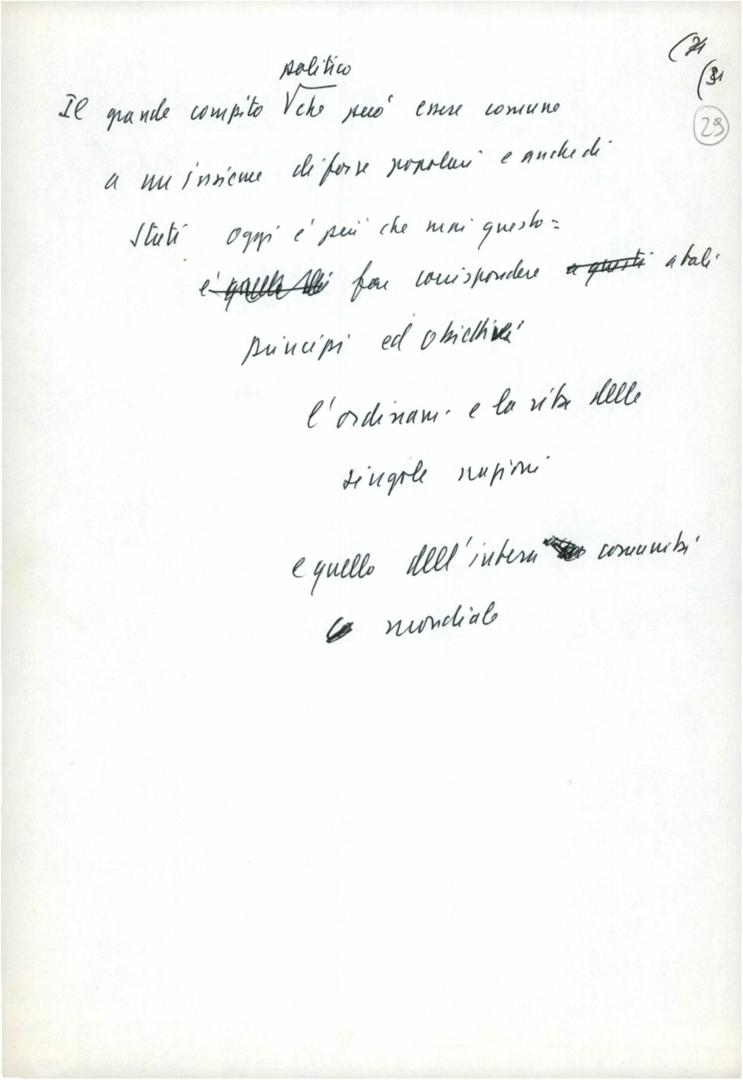 politico
Il grande compito che può essere comune
a un'insieme di forze popolari e anche di
Stati oggi è più che mai questo =
è quello di far corrispondere a questi a tali
principi ed obiettivi
l'ordinam. e la vita delle
singole nazioni
e quello dell'intera comunità
mondiale
29